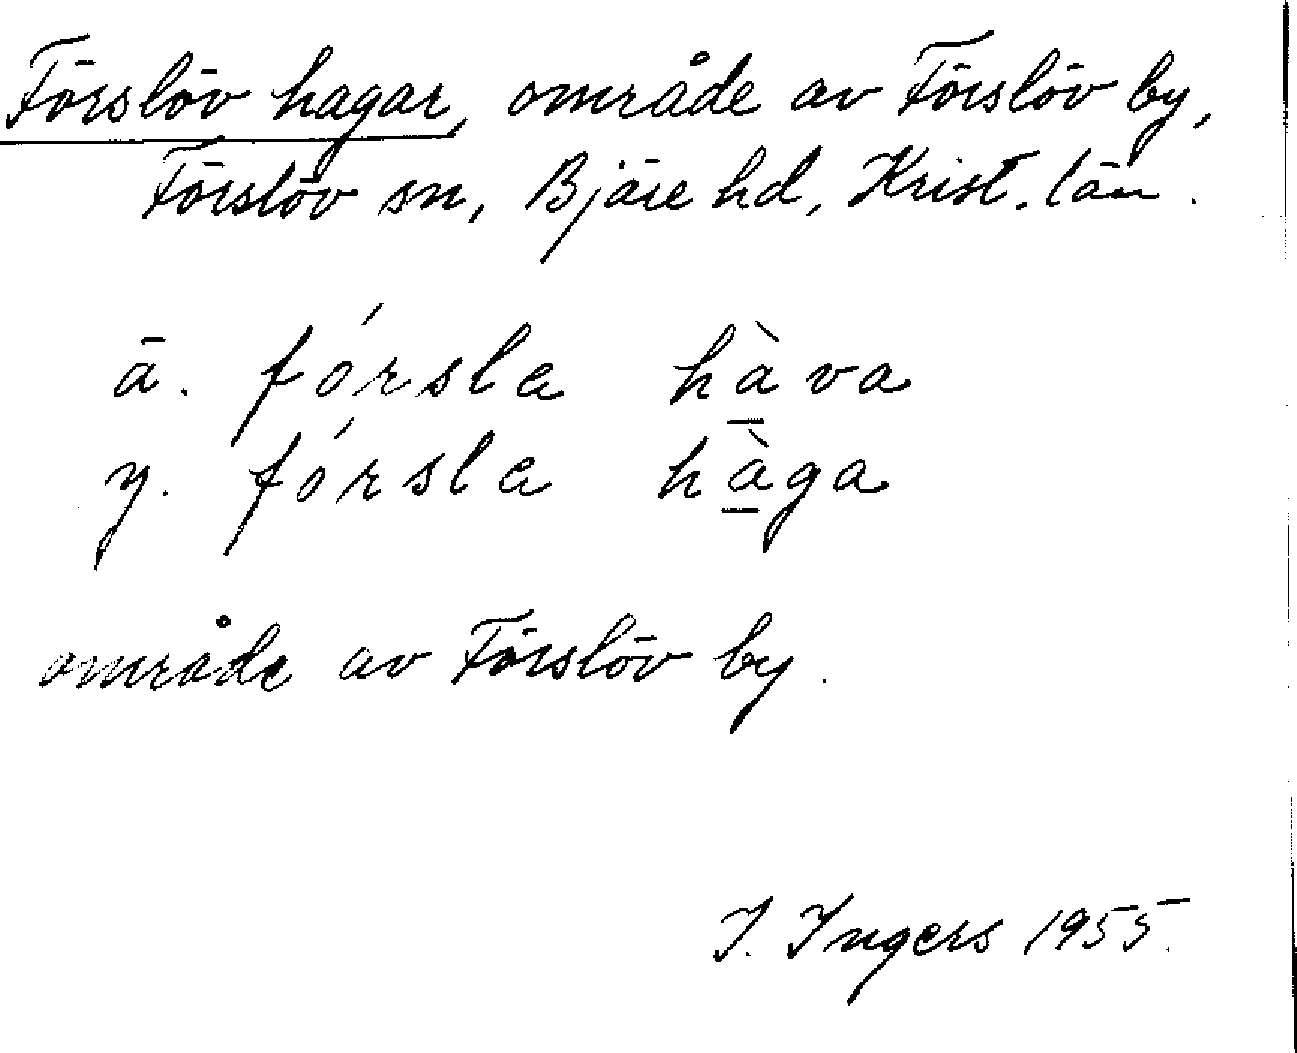 Förslöv hagar, område av Förslöv by,
Förslöv sn, Bjäre hd, Krist. län.
ä. fórsla hà̱va
y. fórsla hà̱ga
område av Förslöv by.
I. Ingers 1955.